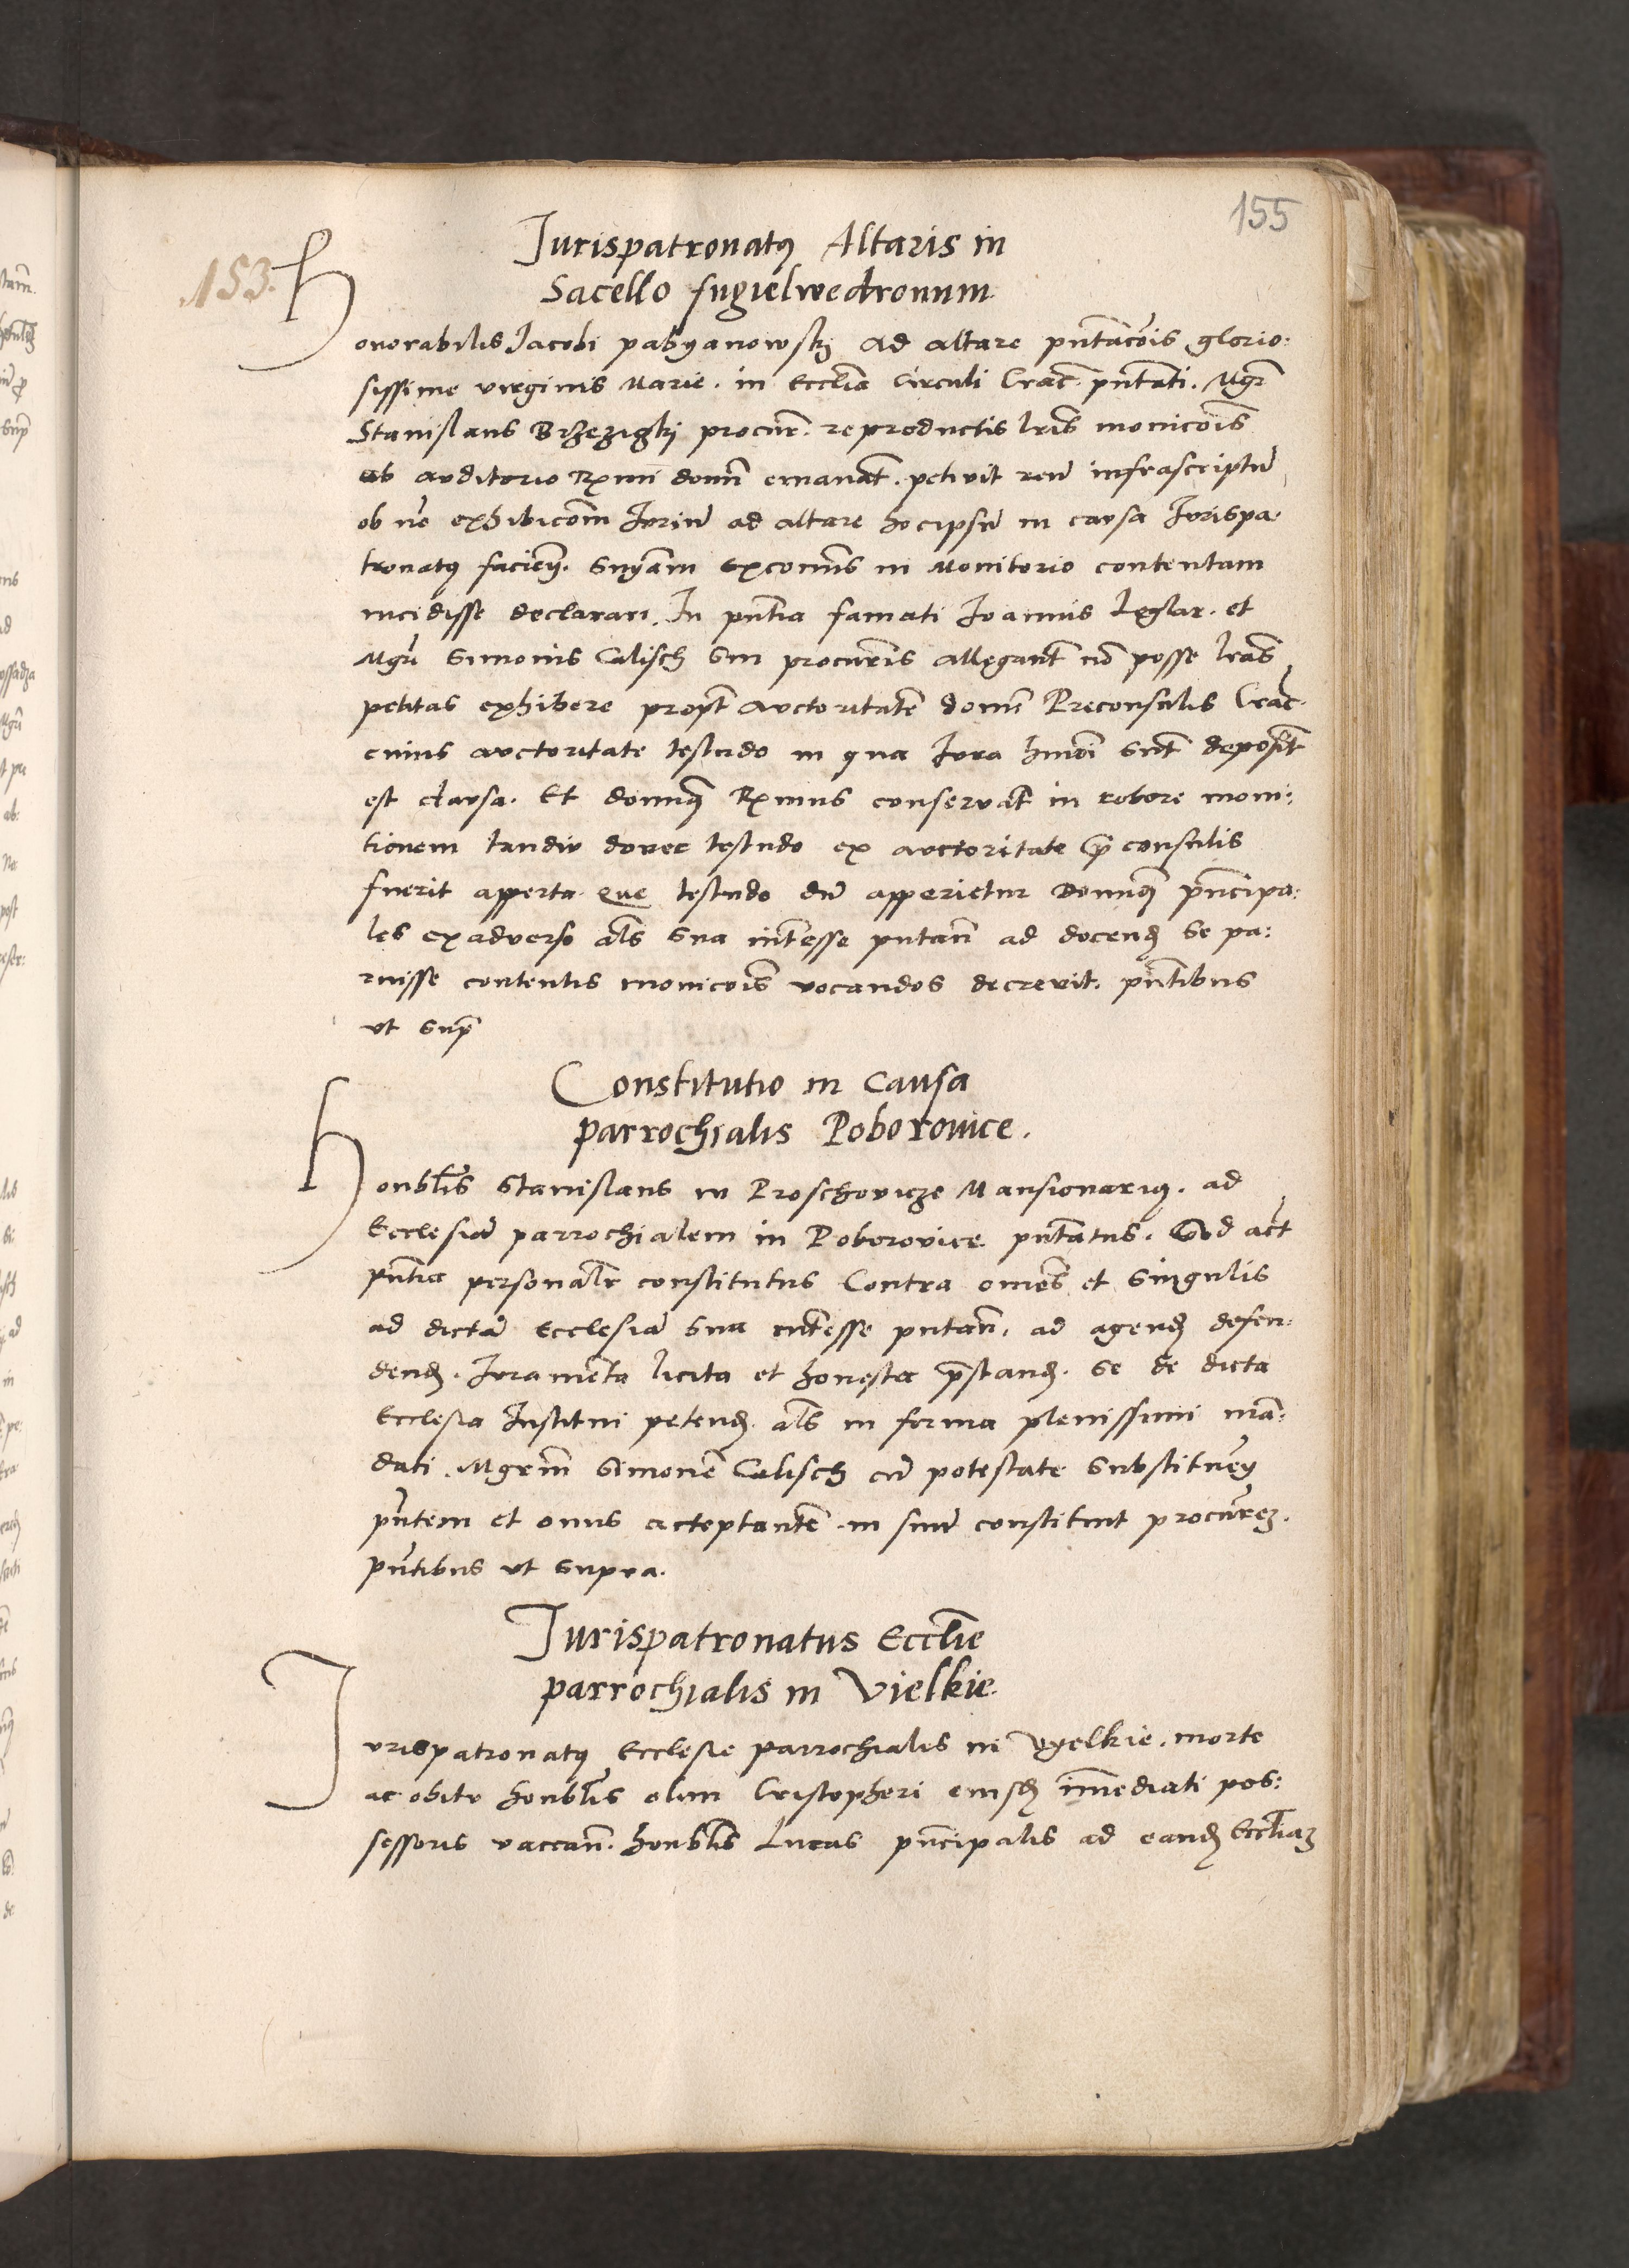 155
153.
Jurispatronatꝯ Altaris in
Sacello fugielwedronum
Honorabilis Jacobi pabyanowskj ad altare pn̄tac̄ois glorio:
sissime virginis Marie. in Eccl̄ia Circuli Crac̄. pn̄tati. Mgr̄
Stanislaus Brzezigkj procur̄. reproductis lr̄is monic̄ois
ab auditorio Rx̄mi dom̄ emanat̄. petivit reū infrascriptū
ob nō exhibic̄om̄ Juriū ad altare hocipsū in causa Jurispa:
tronatꝯ facień. Snīam excom̄is in Monitorio contentam
incidisse declarari. In pn̄tia famati Joannis Legslar. et
Mgrī Simonis Calisch sui procur̄is allegant̄ nō posse lr̄as
petitas exhibere propt̄ auctoritatē domī Preconsulis Crac̄.
cuius auctoritate testudo in qua Jura hmōi sunt deposit̄
est clausa. Et domiꝯ Rx̄mus conservat̄ in robore moni:
tionem tandiu donec testudo ex auctoritate p̄consulis
fuerit apperta. que testudo dū apperietur Domiꝯ prīncipa:
les exadverso al̄s sua int̄esse putan̄ ad docend̄ se pa:
ruisse contentis monic̄ois vocandos decrevit. pn̄tibus
vt sup̄
Constitutio in causa
parrochialis Poborouice.
Honbl̄is Stanislaus in Proschovicze Mansionariꝯ. ad
Ecclesiā parrochialem in Poborovice pn̄tatus. Ad act̄
pn̄tia personal̄r constitutus Contra omēs et singulis
ad dictā Ecclesiā sua int̄esse putan̄. ad agend̄ defen:
dend̄. Juramēta licita et honesta p̄stand̄. se de dicta
Ecclesia Institui petend̄. al̄s in forma plenissimi mā:
dati. Mgrm̄ Simonē Calisch cū potestate substituēn̄
pn̄tem et onus acceptantē in suū constituit procur̄eꝫ.
pn̄tibus vt supra.
Jurispatronatus Eccl̄ie
parrochialis in Vielkie.
Jurispatronatꝯ Ecclesie parrochialis in Vyelkie. morte
ac obitu honbl̄is olim Cristopheri eiusd̄ im̄ediati pos:
sessoris vaccan̄. honbl̄is Lucas prīncipalis ad eand̄ Eccl̄iaꝫ